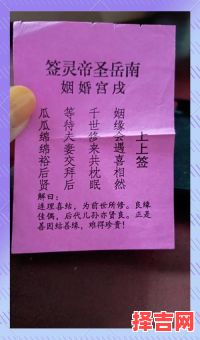 南岳圣帝灵签
戌宫婚姻
上上签
姻缘会遇喜相然
千世修来共枕眠
等待夫妻交拜后
瓜瓜绵绵裕后贤
解曰:
连理喜结，为前世所修。良缘
佳偶，后代儿孙亦贤良。正是
善因结善缘，难得珍贵!
择吉网